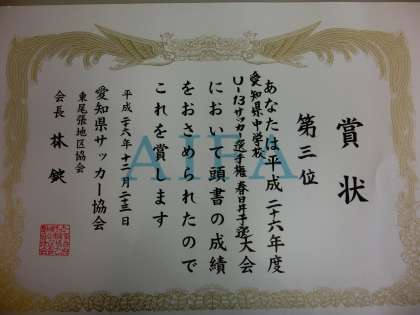 賞状
第三位
あなたは平成二十六年度
愛知県中学校
U-13サッカー選手権春日井予選大会
において頭書の成績
をおさめられたので
これを賞します
平成二十六年十二月二十三日
愛知県サッカー協会
東尾張地区協会
会長 林
AIFA